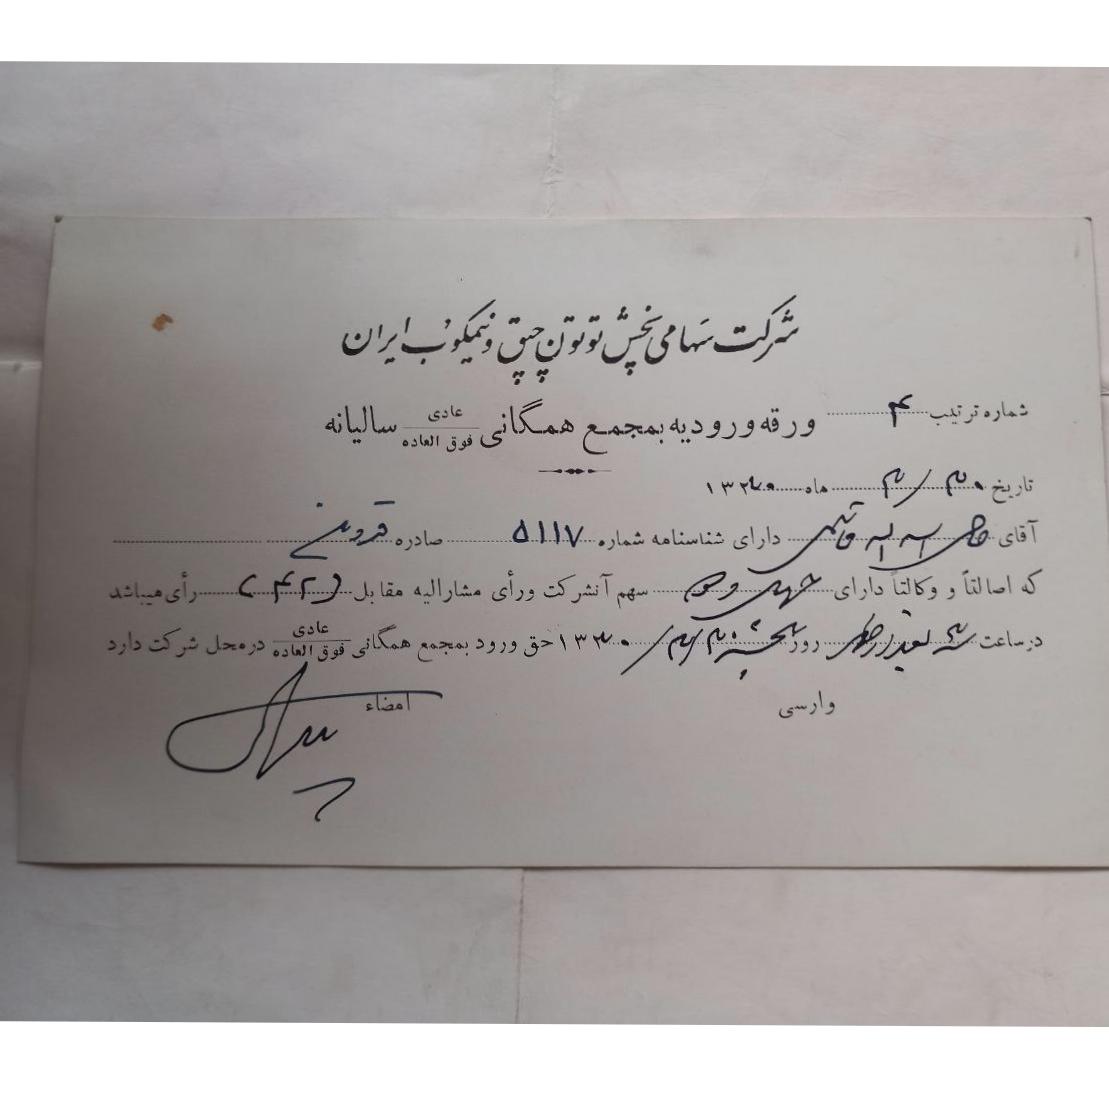 شرکت سهامی پخش توتون چپق و نیمکوب ایران
شماره ترتیب ۴
ورقه ورودیه بمجمع همگانی عادی فوق العاده سالیانه
تاریخ ۳۰/۳ ماه ۱۳۴۰
آقای حاج اسد اله قاسمی دارای شناسنامه شماره ۵۱۱۷ صادره قزوین
که اصالتاً و وکالتاً دارای چهل و دو سهم آنشرکت ورأی مشارالیه مقابل (۴۲) رأی میباشد
در ساعت بعد از ظهر روز ۱۳۴۰ حق ورود بمجمع همگانی عادی فوق العاده در محل شرکت دارد
وارسی
امضاء